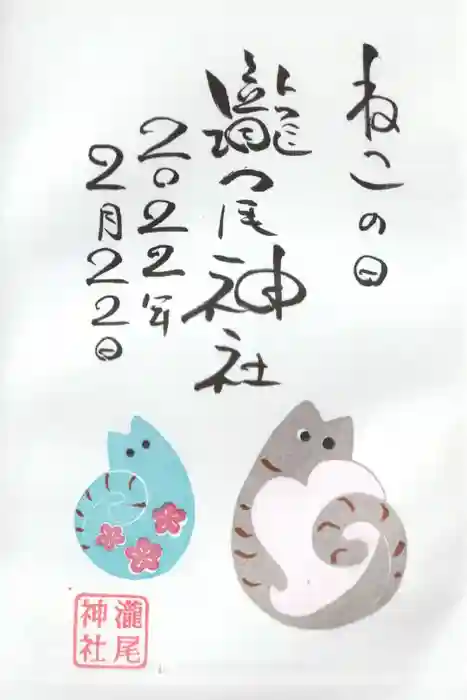 ねこの日
瀧つ尾神社
2022年
2月22日
瀧尾
神社